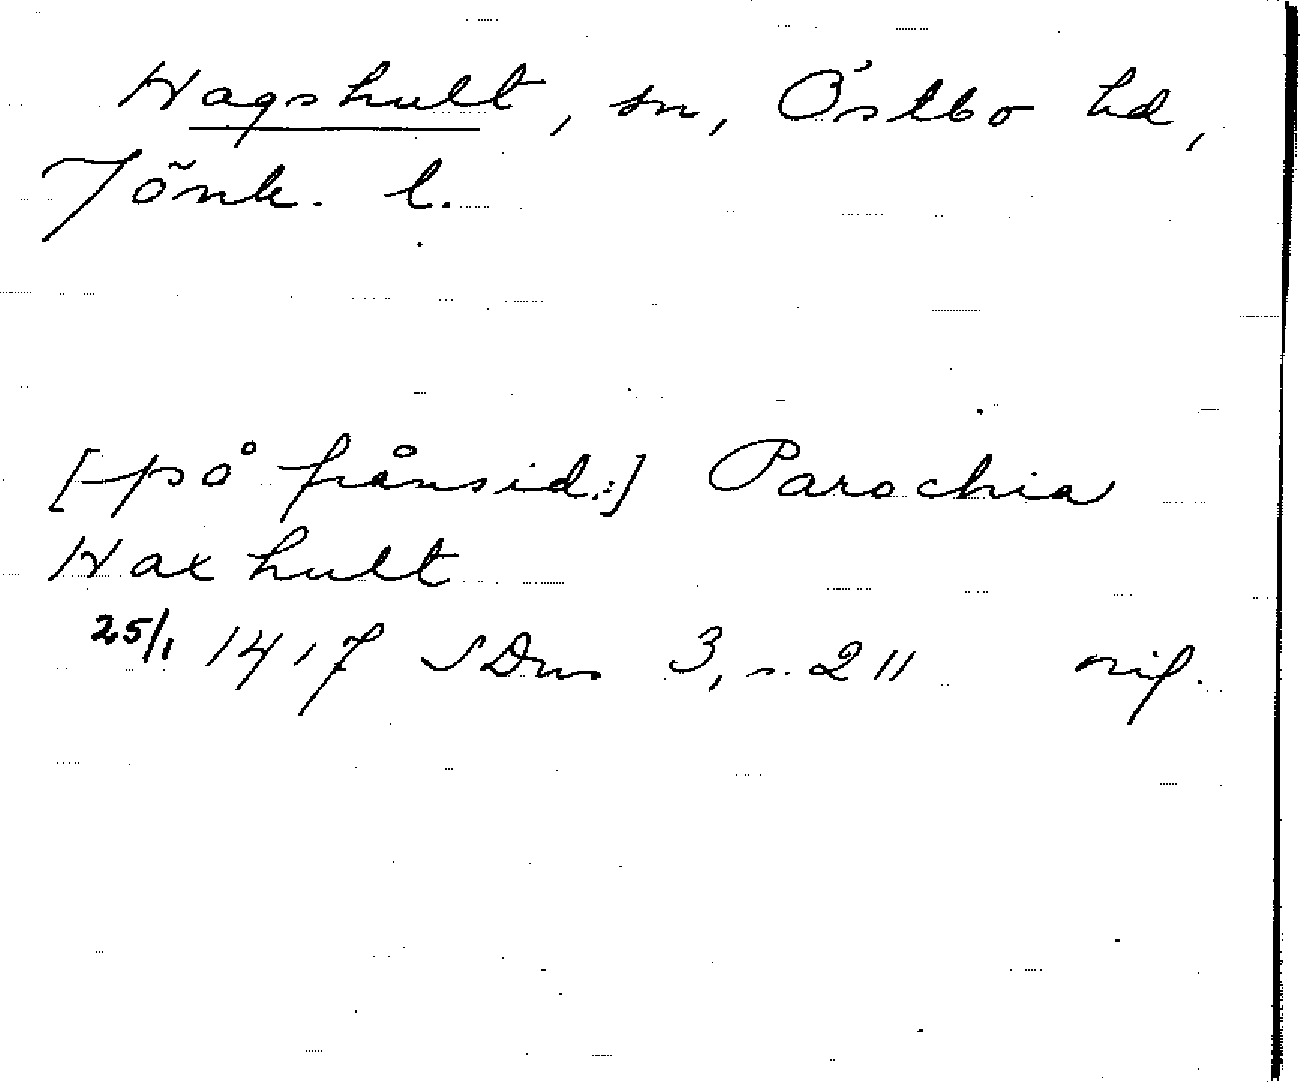 Hagshult, sn, Östbo hd,
Jönk. l.
[på frånsid.:] Parochia
Haxhult
25/1 1417 SDns 3, s. 211 or.